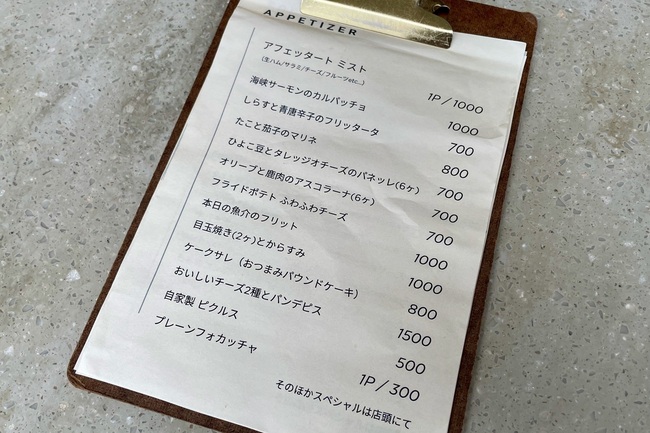 APPETIZER
アフェッタート ミスト 1P/1000
(生ハム/サラミ/チーズ/フルーツetc...)
海峡サーモンのカルパッチョ 1000
しらすと青唐辛子のフリッタータ 700
たこと茄子のマリネ 800
ひよこ豆とタレッジオチーズのパネッレ(6ヶ) 700
オリーブと鹿肉のアスコラーナ(6ヶ) 700
フライドポテト ふわふわチーズ 700
本日の魚介のフリット 1000
目玉焼き(2ヶ)とからすみ 1000
ケークサレ（おつまみパウンドケーキ） 800
おいしいチーズ2種とパンデピス 1500
自家製 ピクルス 500
プレーンフォカッチャ 1P/300
そのほかスペシャルは店頭にて